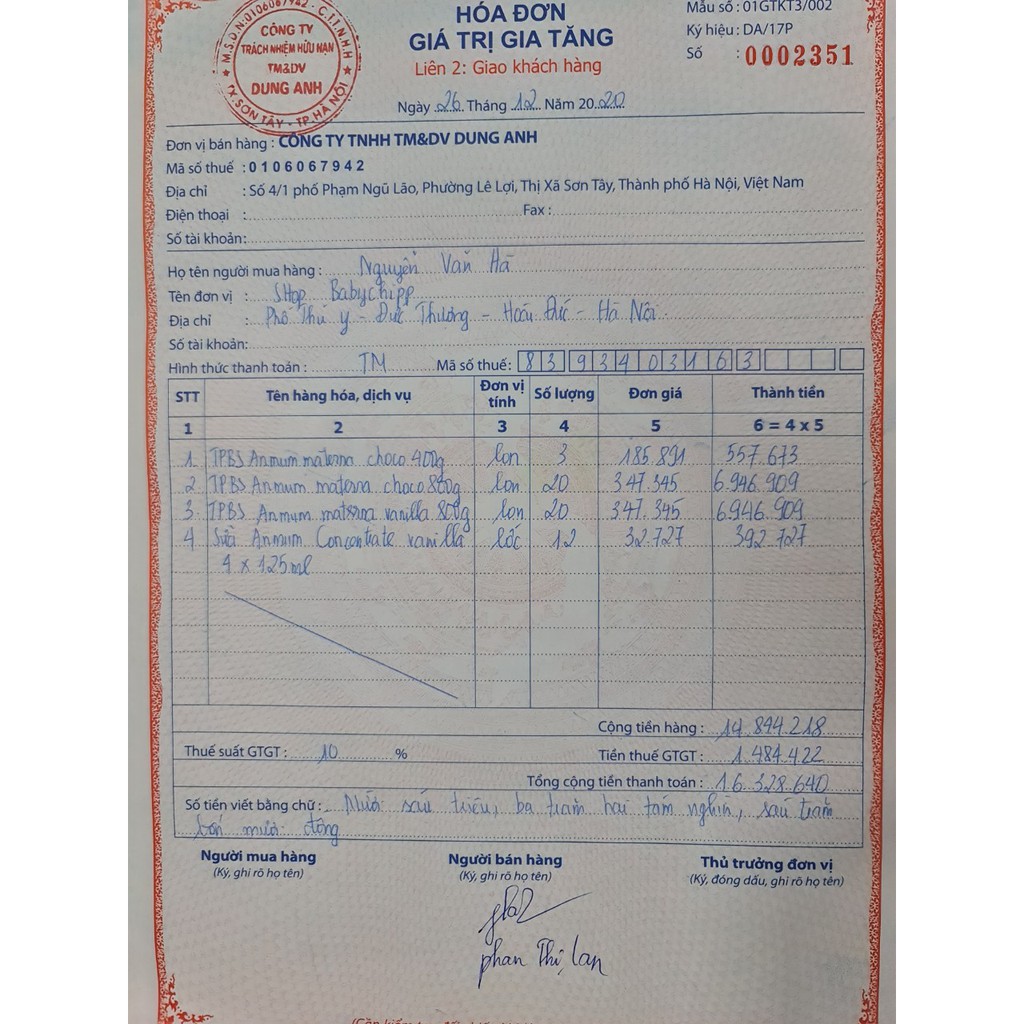 M.S.D.N:0106067942 - C.T.T.N.H.H
CÔNG TY
TRÁCH NHIỆM HỮU HẠN
TM&DV
DUNG ANH
TX.SƠN TÂY - TP.HÀ NỘI
HÓA ĐƠN
GIÁ TRỊ GIA TĂNG
Liên 2: Giao khách hàng
Ngày 26 Tháng 12 Năm 2020
Mẫu số : 01GTKT3/002
Ký hiệu : DA/17P
Số : 0002351
Đơn vị bán hàng : CÔNG TY TNHH TM&DV DUNG ANH
Mã số thuế : 0106067942
Địa chỉ : Số 4/1 phố Phạm Ngũ Lão, Phường Lê Lợi, Thị Xã Sơn Tây, Thành phố Hà Nội, Việt Nam
Điện thoại : Fax :
Số tài khoản:
Họ tên người mua hàng : Nguyễn Văn Hà
Tên đơn vị : SHop Babychipp
Địa chỉ : Phố Thú y - Đức Thượng - Hoài Đức - Hà Nội
Số tài khoản:
Hình thức thanh toán : TM Mã số thuế: 8393403163
STT Tên hàng hóa, dịch vụ Đơn vị tính Số lượng Đơn giá Thành tiền
1 2 3 4 5 6 = 4 x 5
1 TPBS Anmum materna choco 400g lon 3 185.891 557.673
2 TPBS Anmum materna choco 800g lon 20 347.345 6.946.909
3 TPBS Anmum materna vanilla 800g lon 20 347.345 6.946.909
4 Sữa Anmum Concentrate vanilla lốc 12 32.727 392.727
4 x 125ml
Cộng tiền hàng : 14.844.218
Thuế suất GTGT : 10 % Tiền thuế GTGT : 1.484.422
Tổng cộng tiền thanh toán : 16.328.640
Số tiền viết bằng chữ : Mười sáu triệu, ba trăm hai tám nghìn, sáu trăm
bốn mươi đồng
Người mua hàng Người bán hàng Thủ trưởng đơn vị
(Ký, ghi rõ họ tên) (Ký, ghi rõ họ tên) (Ký, đóng dấu, ghi rõ họ tên)
phan Thị Lan